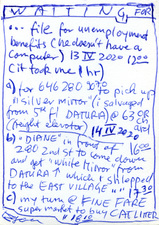 WAITING FOR
... file for unemployment
benefits (he doesn't have a
computer) 13 IV 2020 1200
(it took me 1 hr)
a) for 646 280 to pick up
"silver mirror" (i salvaged
from 7th fl DATURA) @ 63 0R
(freight elevator) 14 IV 2020
b) "DIANE" in front of 1600
280 2nd St to come down
and get "White Mirror from
DATURA which I shopped
to the EAST VILLAGE" 1730
c) my turn @ FINE FARE
super market to buy CAT LITTER
1810